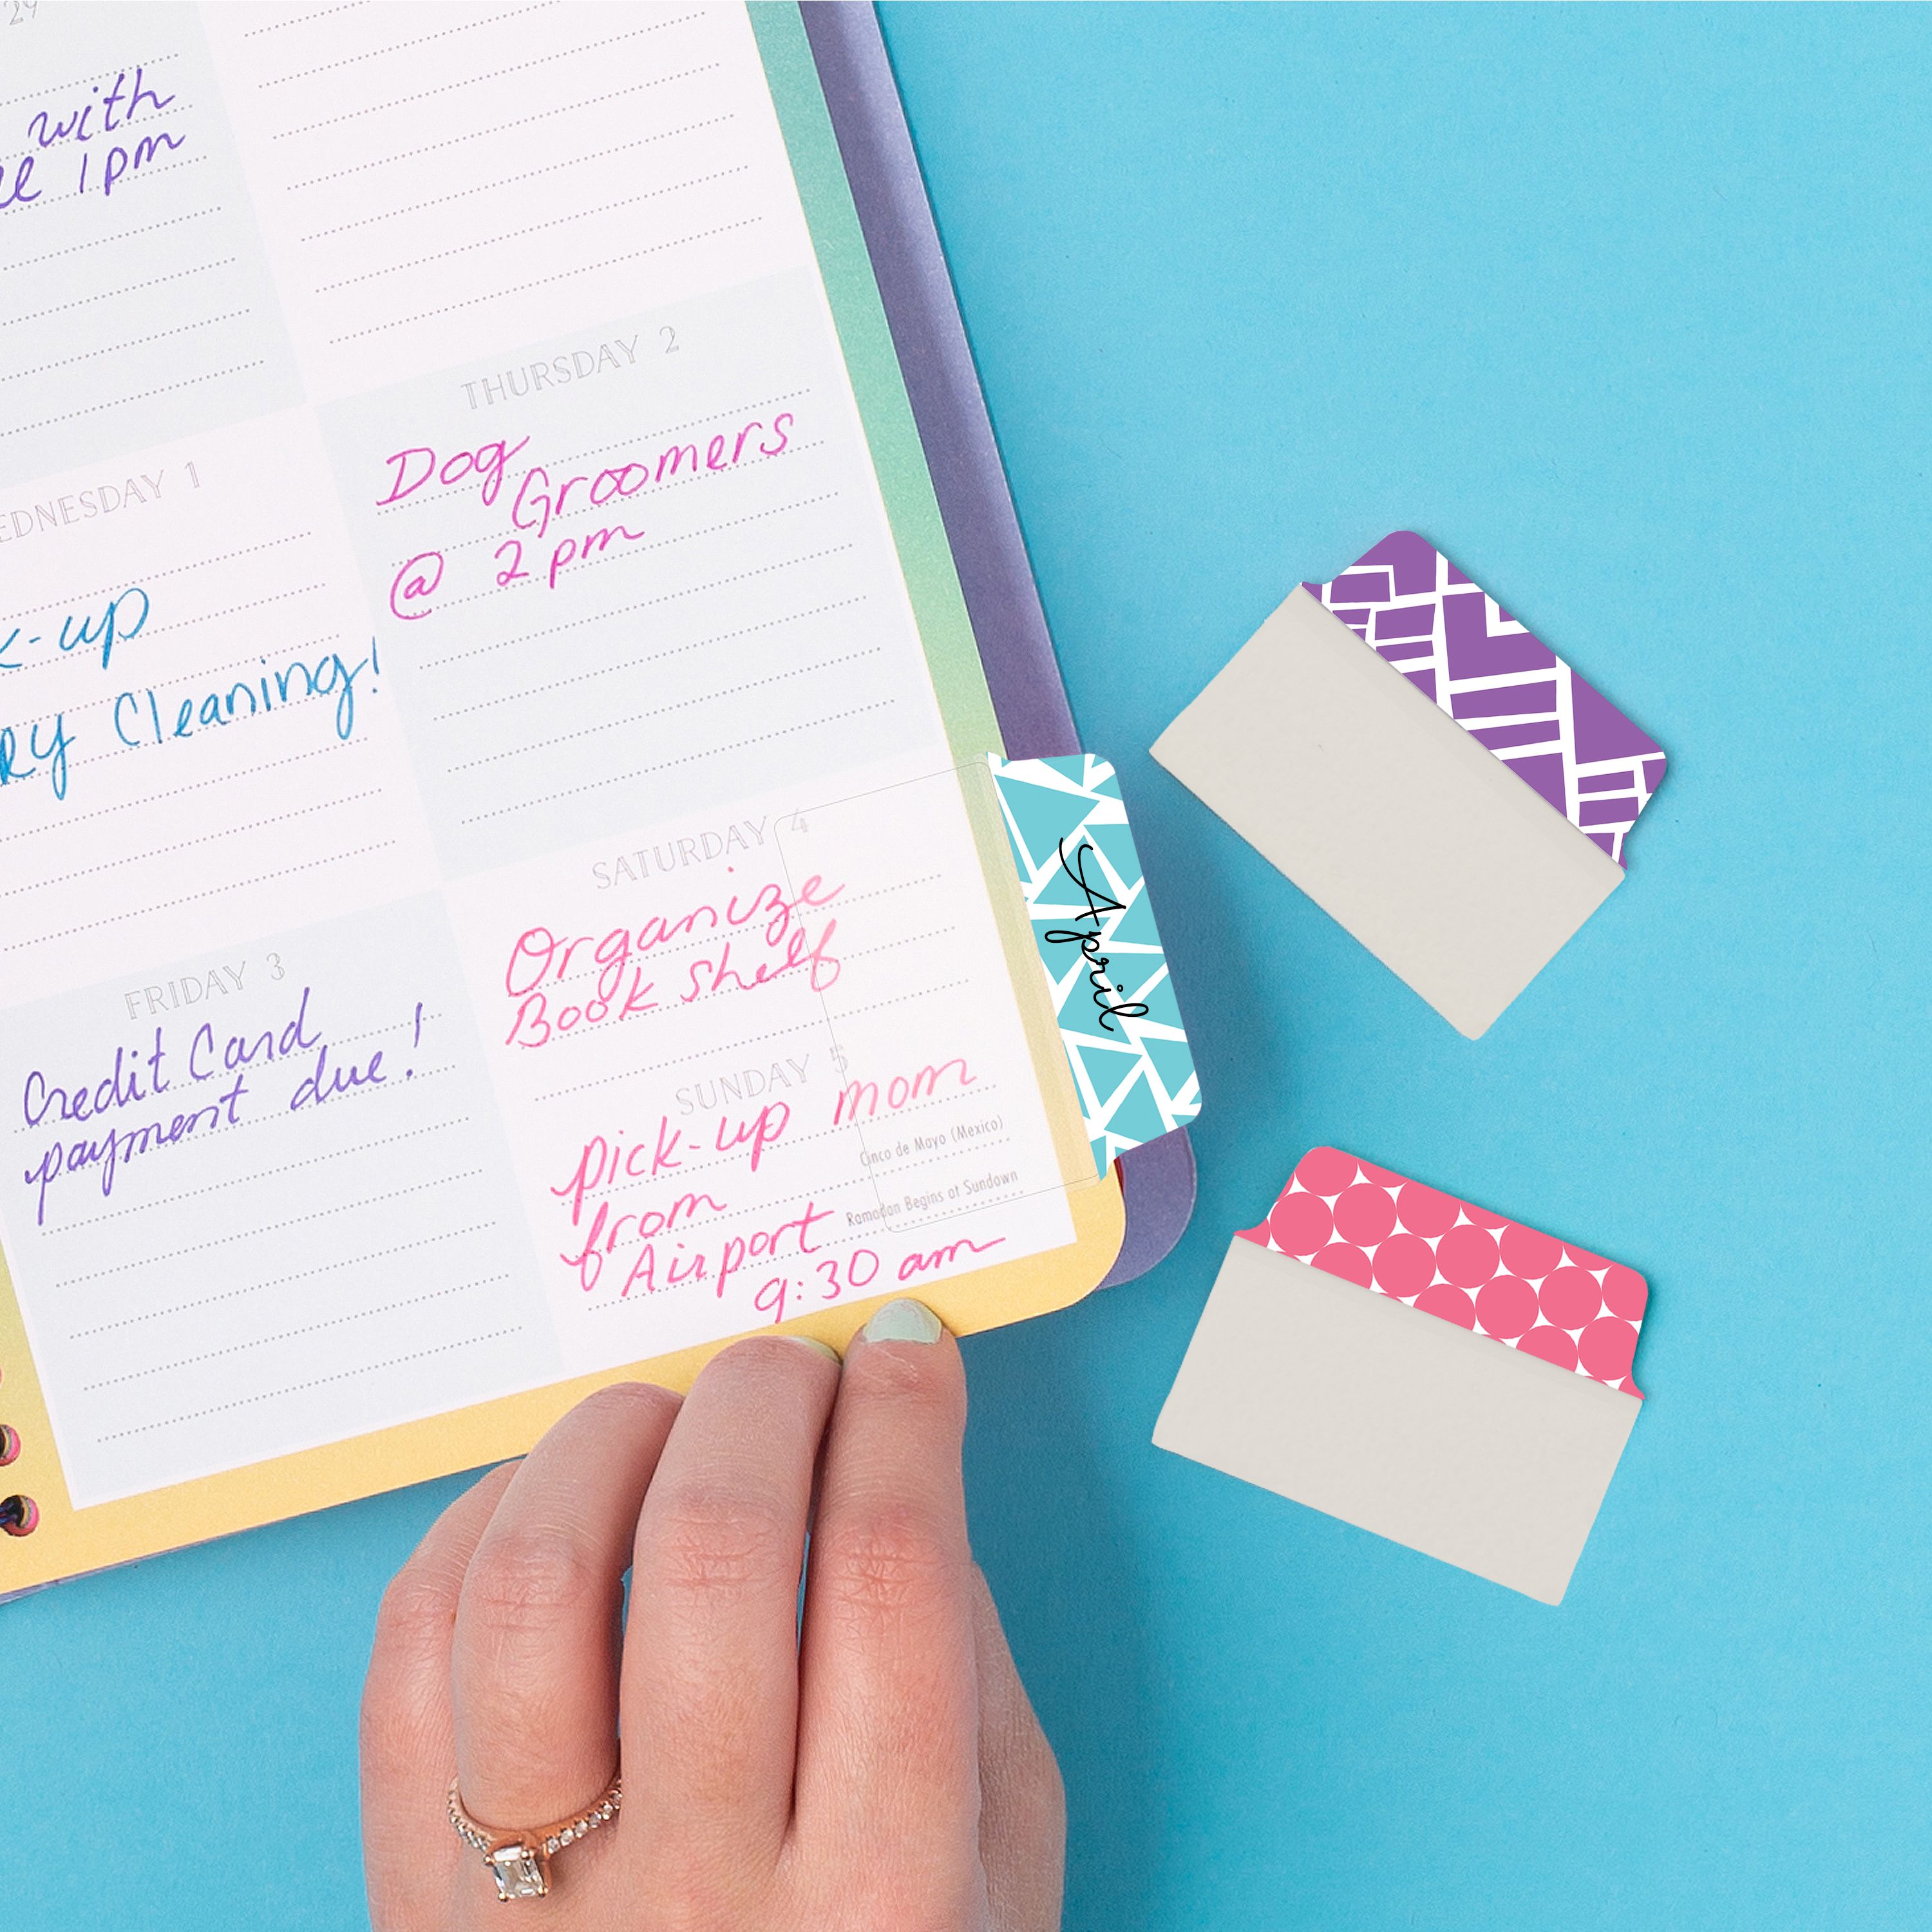 29
with
1pm
THURSDAY 2
Dog
Groomers
@ 2pm
WEDNESDAY 1
k-up
RY Cleaning!
SATURDAY 4
Organize
Book shelf
FRIDAY 3
Credit Card
payment due!
SUNDAY 5
pick-up mom
Cinco de Mayo (Mexico)
from
Ramadan Begins at Sundown
Airport
9:30 am
April